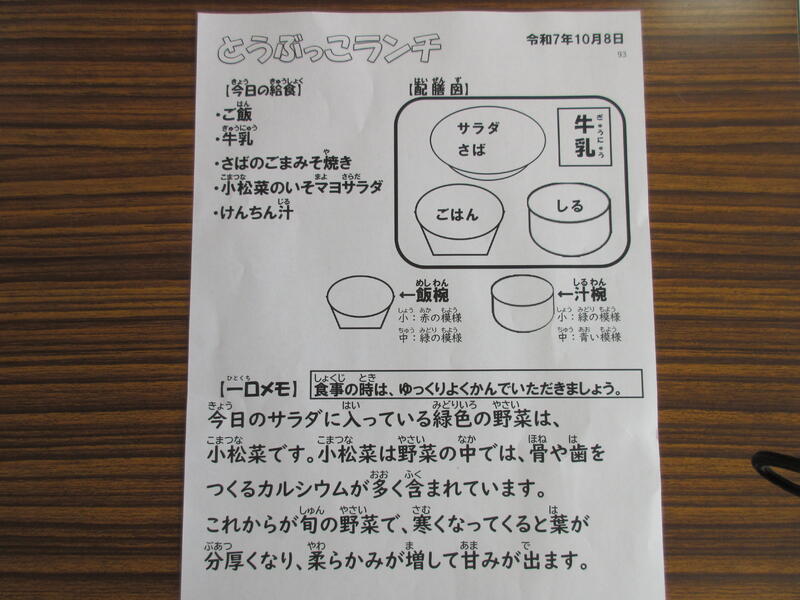 とうぶっこランチ
令和7年10月8日
93
【今日の給食】
・ご飯
・牛乳
・さばのごまみそ焼き
・小松菜のいそマヨサラダ
・けんちん汁
【配膳図】
サラダ
さば
牛乳
ごはん
しる
←飯椀
小：赤の模様
中：緑の模様
←汁椀
小：緑の模様
中：青い模様
【一口メモ】
食事の時は、ゆっくりよくかんでいただきましょう。
今日のサラダに入っている緑色の野菜は、
小松菜です。小松菜は野菜の中では、骨や歯を
つくるカルシウムが多く含まれています。
これからが旬の野菜で、寒くなってくると葉が
分厚くなり、柔らかみが増して甘みが出ます。